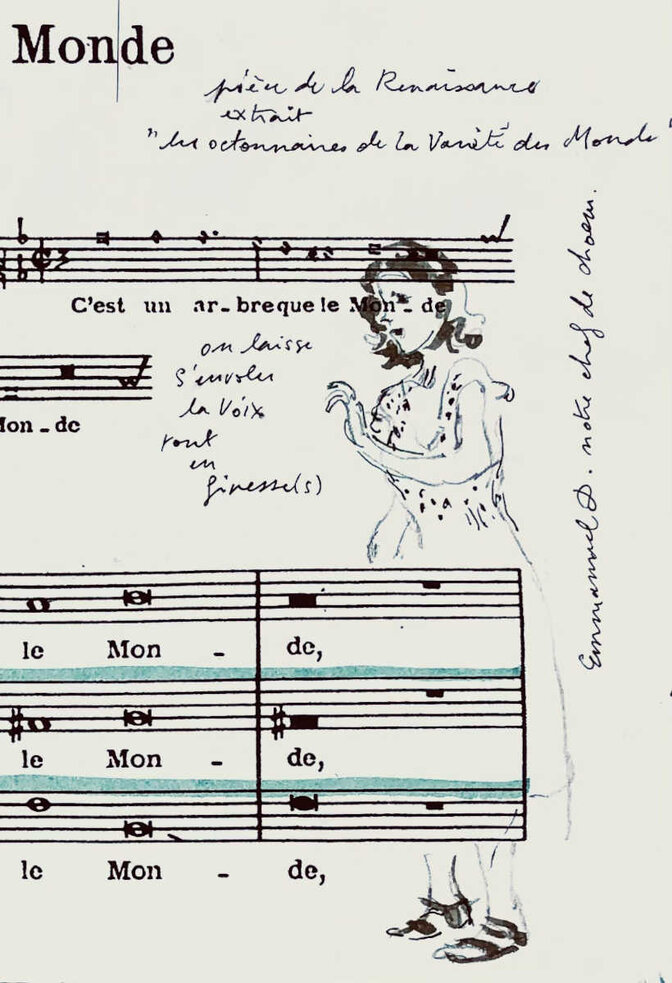 Monde
pièce de la Renaissance
extrait
"les octonnaires de la Vanité du Monde"
C'est un ar-breque le Mon-de
on laisse
s'envoler
la Voix
tout
en
finesse(s)
Mon-de
Emmanuel D. notre chef de choeur.
le Mon - de,
le Mon - de,
le Mon - de,